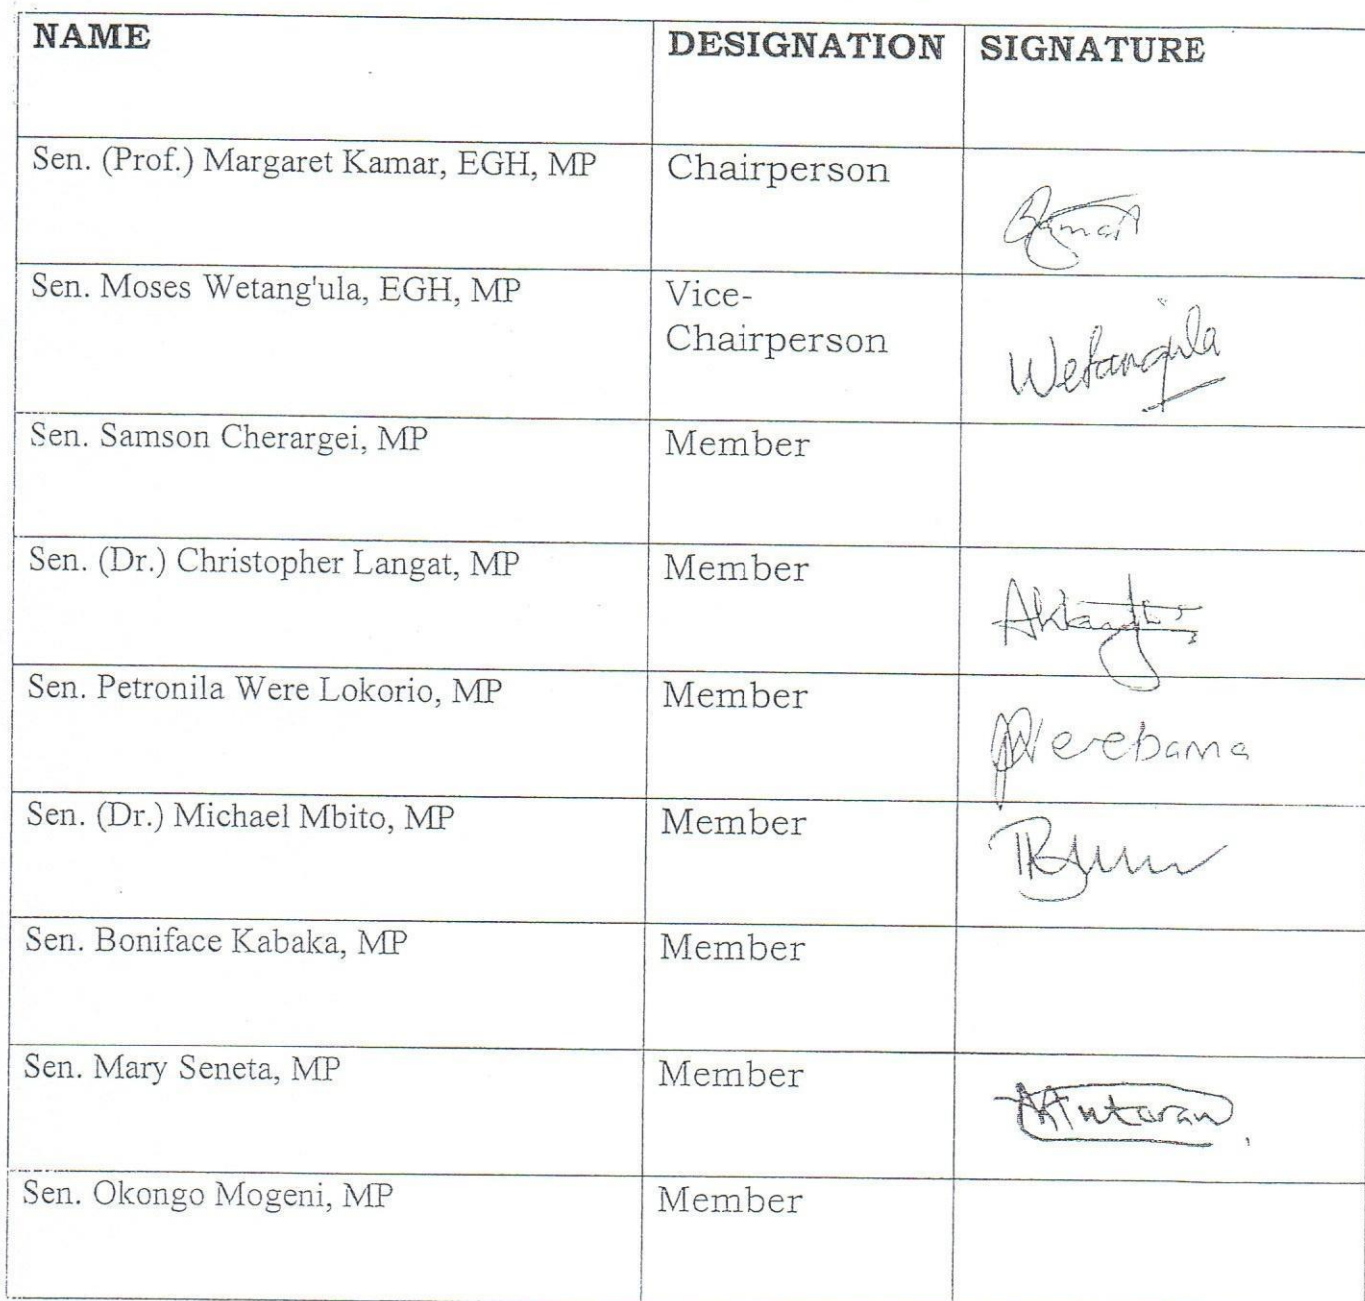 NAME
DESIGNATION
SIGNATURE
Sen. (Prof.) Margaret Kamar, EGH, MP
Chairperson
Sen. Moses Wetang'ula, EGH, MP
Vice-
Chairperson
Wetangula
Sen. Samson Cherargei, MP
Member
Sen. (Dr.) Christopher Langat, MP
Member
Sen. Petronila Were Lokorio, MP
Member
Sen. (Dr.) Michael Mbito, MP
Member
Sen. Boniface Kabaka, MP
Member
Sen. Mary Seneta, MP
Member
Sen. Okongo Mogeni, MP
Member